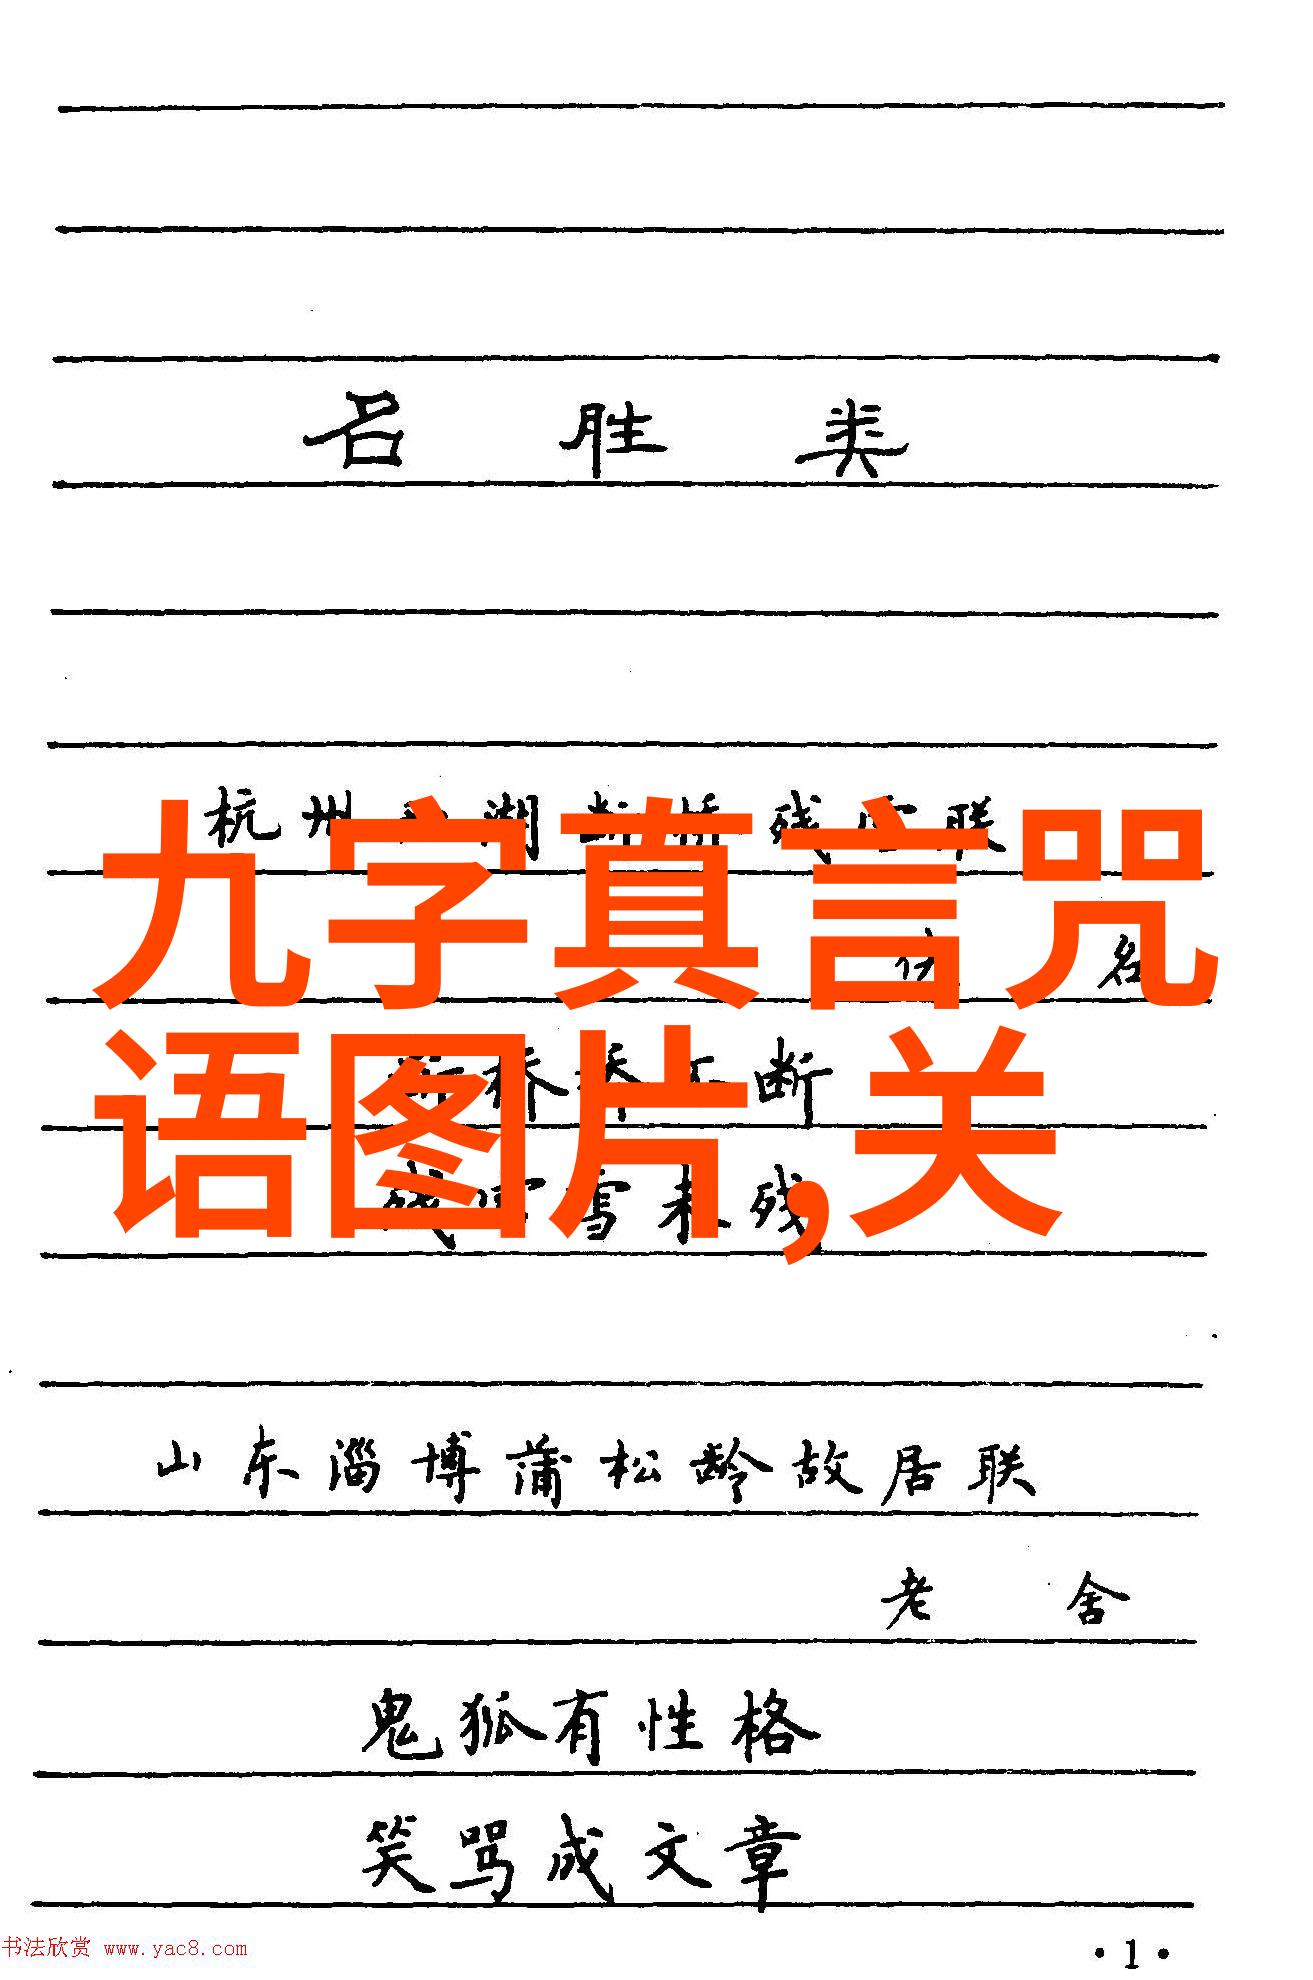 名胜类
杭州 湖断桥残雪联
名
九字真言咒
语图片,关
断桥桥不断
残雪雪未残
山东淄博蒲松龄故居联
老舍
鬼狐有性格
笑骂成文章
书法欣赏 www.yac8.com
·1·